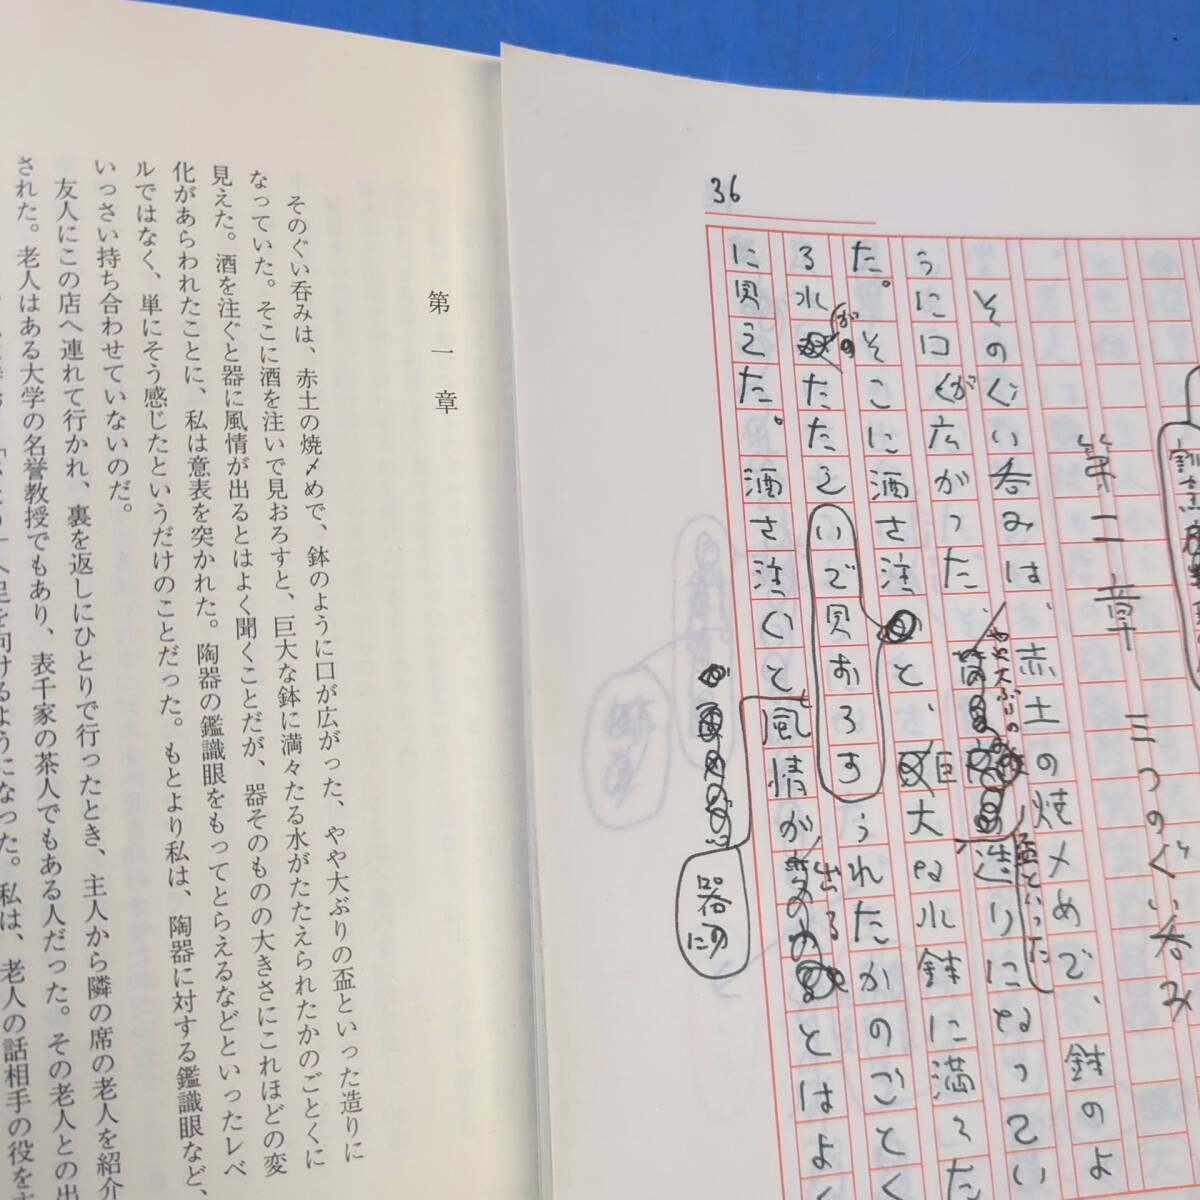 第一章
そのぐい呑みは、赤土の焼〆めで、鉢のように口が広がった、やや大ぶりの盃といった造りに
なっていた。そこに酒を注いで見おろすと、巨大な鉢に満々たる水がたたえられたかのごとくに
見えた。酒を注ぐと器に風情が出るとはよく聞くことだが、器そのものの大きさにこれほどの変
化があらわれたことに、私は意表を突かれた。陶器の鑑識眼をもってとらえるなどといったレベ
ルではなく、単にそう感じたというだけのことだった。もとより私は、陶器に対する鑑識眼など、
いっさい持ち合わせていないのだ。
友人にこの店へ連れて行かれ、裏を返しにひとりで行ったとき、主人から隣の席の老人を紹介
された。老人はある大学の名誉教授でもあり、表千家の茶人でもある人だった。その老人との出
へ足を向けるようになった。私は、老人の話相手の役をす
36
第二章 三つのぐい呑み
そのぐい呑みは、赤土の焼〆めで、鉢のよ
うに口が広がった
やや大ぶりの
盃といった
造りになってい
た。そこに酒を注
と、巨大な水鉢に満々た
る水
が
たたえ
いで見おろす
られたかのごとく
に見えた。酒を注ぐと
器に
風情が
出る
とはよく